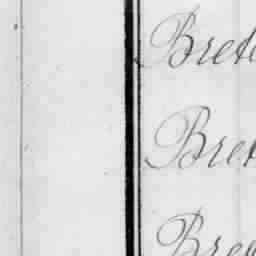 Bret
Bret
Bre